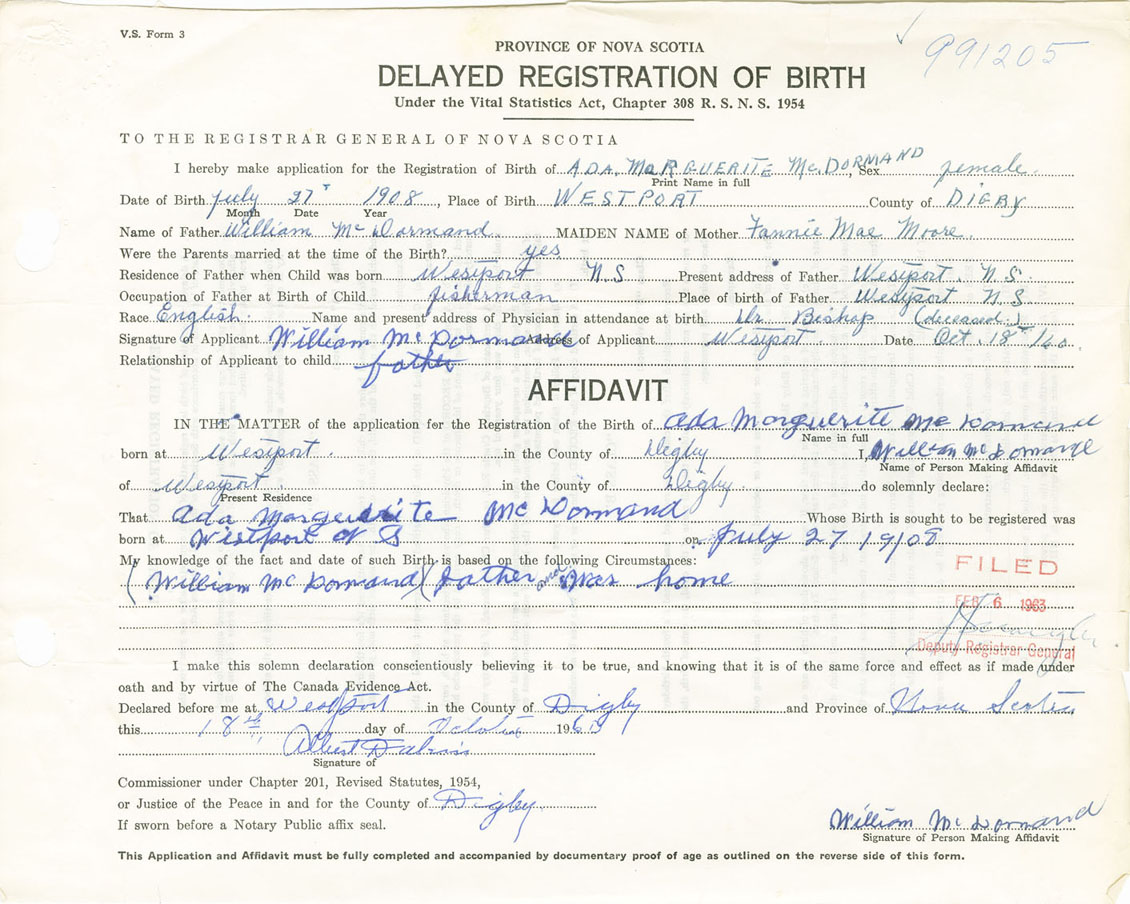 V.S. Form 3
991205
PROVINCE OF NOVA SCOTIA
DELAYED REGISTRATION OF BIRTH
Under the Vital Statistics Act, Chapter 308 R. S. N. S. 1954
TO THE REGISTRAR GENERAL OF NOVA SCOTIA
I hereby make application for the Registration of Birth of ADA MARGUERITE McDORMAND, Sex female
Print Name in full
Date of Birth July 27 1908, Place of Birth WESTPORT County of DIGBY
Month Date Year
Name of Father William McDormand MAIDEN NAME of Mother Fannie Mae Moore
Were the Parents married at the time of the Birth? yes
Residence of Father when Child was born Westport N S Present address of Father Westport N.S.
Occupation of Father at Birth of Child fisherman Place of birth of Father Westport N S
Race English. Name and present address of Physician in attendance at birth Dr Bishop (deceased.)
Signature of Applicant William McDormand Address of Applicant Westport. Date Oct. 18th/60
Relationship of Applicant to child father
AFFIDAVIT
IN THE MATTER of the application for the Registration of the Birth of Ada Marguerite McDormand
Name in full
born at Westport. in the County of Digby I, William McDormand
Name of Person Making Affidavit
of Westport. in the County of Digby. do solemnly declare:
Present Residence
That Ada Marguerite McDormand Whose Birth is sought to be registered was
born at Westport N S on July 27 1908
My knowledge of the fact and date of such Birth is based on the following Circumstances:
(William McDormand) (father and was home
FILED
FEB 6 1963
Deputy Registrar General
I make this solemn declaration conscientiously believing it to be true, and knowing that it is of the same force and effect as if made under
oath and by virtue of The Canada Evidence Act.
Declared before me at Westport in the County of Digby and Province of Nova Scotia
this 18th day of October 1960
Albert
Signature of
Commissioner under Chapter 201, Revised Statutes, 1954,
or Justice of the Peace in and for the County of Digby
If sworn before a Notary Public affix seal.
William McDormand
Signature of Person Making Affidavit
This Application and Affidavit must be fully completed and accompanied by documentary proof of age as outlined on the reverse side of this form.